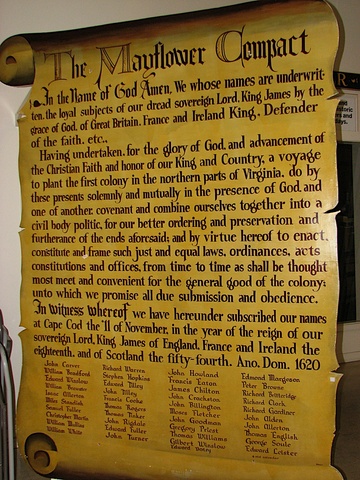 The Mayflower Compact
In the Name of God Amen. We whose names are underwrit-
ten, the loyal subjects of our dread sovereign Lord, King James by the
grace of God, of Great Britain, France and Ireland King, Defender
of the faith, etc.,
Having undertaken, for the glory of God, and advancement of
the Christian Faith and honor of our King and Country, a voyage
to plant the first colony in the northern parts of Virginia, do by
these presents solemnly and mutually in the presence of God, and
one of another, covenant and combine ourselves together into a
civil body politic, for our better ordering and preservation and
furtherance of the ends aforesaid; and by virtue hereof to enact,
constitute and frame such just and equal laws, ordinances, acts
constitutions and offices, from time to time as shall be thought
most meet and convenient for the general good of the colony;
unto which we promise all due submission and obedience.
In witness whereof we have hereunder subscribed our names
at Cape Cod the 11 of November, in the year of the reign of our
sovereign Lord, King James of England, France and Ireland the
eighteenth, and of Scotland the fifty-fourth. Ano. Dom. 1620
John Carver
William Bradford
Edward Winslow
William Brewster
Isaac Allerton
Miles Standish
Samuel Fuller
Christopher Martin
William Mullins
William White
Richard Warren
Stephen Hopkins
Edward Tilley
John Tilley
Francis Cooke
Thomas Rogers
Thomas Tinker
John Rigdale
Edward Fuller
John Turner
John Howland
Francis Eaton
James Chilton
John Crackston
John Billington
Moses Fletcher
John Goodman
Gregory Priest
Thomas Williams
Gilbert Winslow
Edward Doty
Edmund Margeson
Peter Browne
Richard Britteridge
Richard Clark
Richard Gardiner
John Alden
John Allerton
Thomas English
George Soule
Edward Leister
R